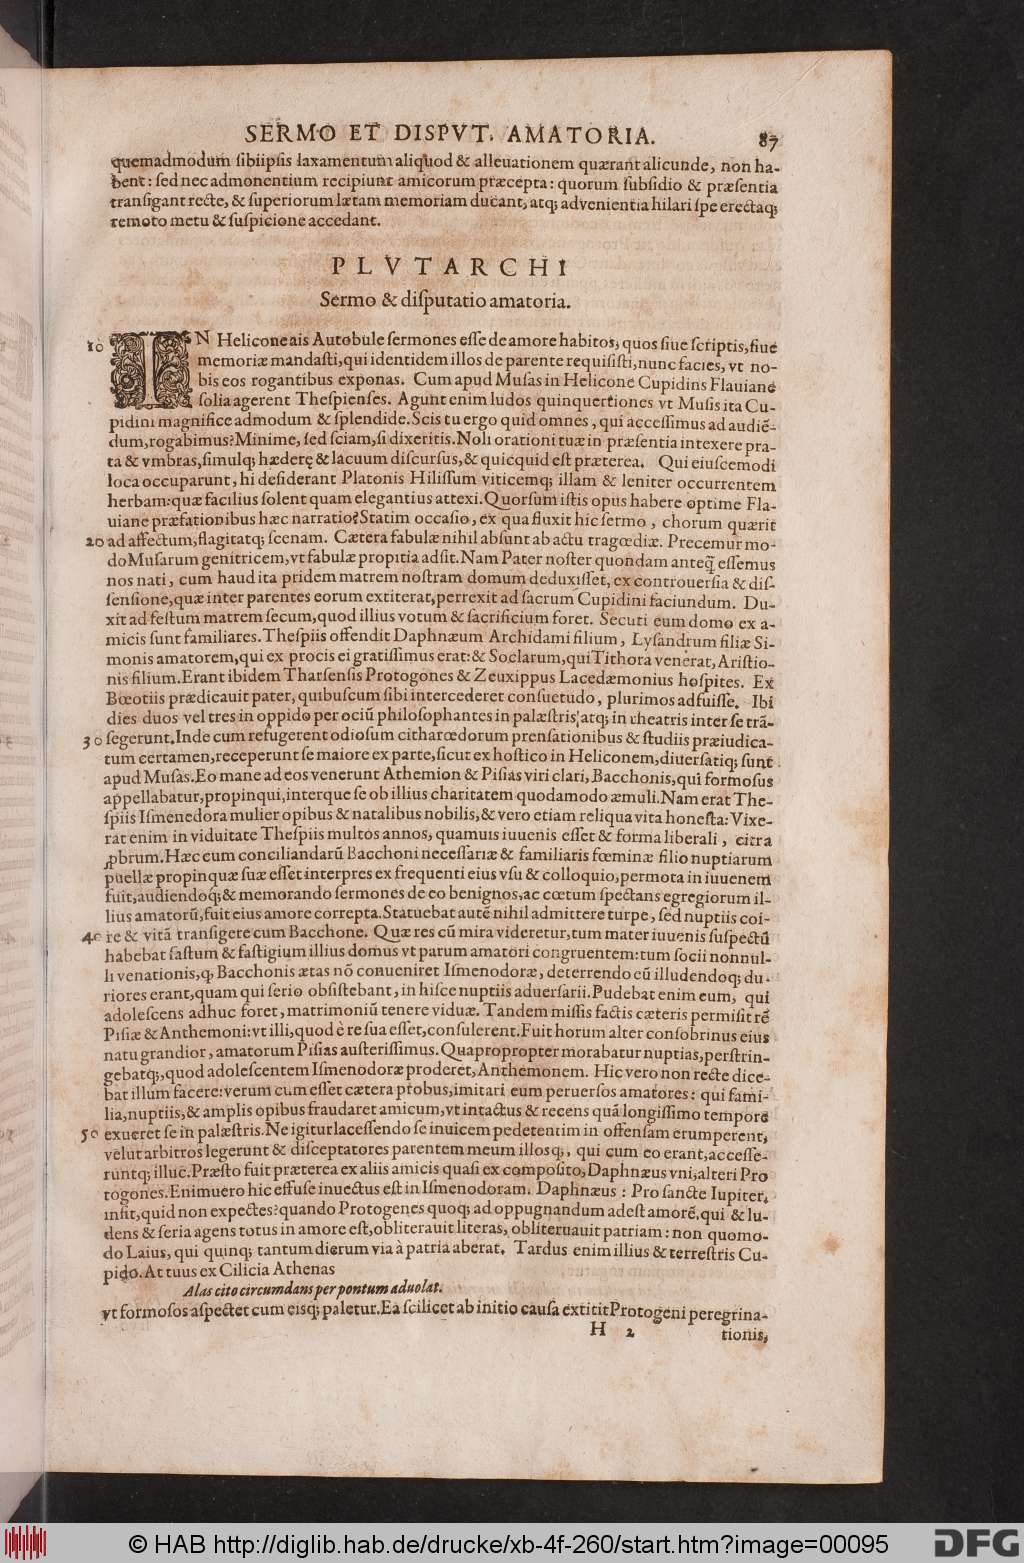 SERMO ET DISPVT. AMATORIA. 87
quemadmodum sibiipsis laxamentum aliquod & alleuationem quærant alicunde, non ha-
bent: sed nec admonentium recipiunt amicorum præcepta: quorum subsidio & præsentia
transigant recte, & superiorum lætam memoriam ducant, atq; advenientia hilari spe erectaq;
remoto metu & suspicione accedant.
PLVTARCHI
Sermo & disputatio amatoria.
10 IN Heliconeais Autobule sermones esse de amore habitos, quos siue scriptis, siue
memoriæ mandasti, qui identidem illos de parente requisisti, nunc facies, vt no-
bis eos rogantibus exponas. Cum apud Musas in Helicone Cupidins Flauiane
solia agerent Thespienses. Agunt enim ludos quinquertiones vt Musis ita Cu-
pidini magnifice admodum & splendide. Scis tu ergo quid omnes, qui accessimus ad audiē-
dum, rogabimus? Minime, sed sciam, si dixeritis. Noli orationi tuæ in præsentia intexere pra-
ta & vmbras, simulq; hæderę & lacuum discursus, & quicquid est præterea. Qui eiuscemodi
loca occuparunt, hi desiderant Platonis Hilissum viticemq; illam & leniter occurrentem
herbam: quæ facilius solent quam elegantius attexi. Quorsum istis opus habere optime Fla-
uiane præfationibus hæc narratio? Statim occasio, ex qua fluxit hic sermo, chorum quærit
20 ad affectum, flagitatq; scenam. Cætera fabulæ nihil absunt ab actu tragœdiæ. Precemur mo-
do Musarum genitricem, vt fabulæ propitia adsit. Nam Pater noster quondam anteq̃ essemus
nos nati, cum haud ita pridem matrem nostram domum deduxisset, ex controuersia & dis-
sensione, quæ inter parentes eorum extiterat, perrexit ad sacrum Cupidini faciundum. Du-
xit ad festum matrem secum, quod illius votum & sacrificium foret. Secuti eum domo ex a-
micis sunt familiares. Thespiis offendit Daphnæum Archidami filium, Lysandrum filiæ Si-
monis amatorem, qui ex procis ei gratissimus erat: & Soclarum, qui Tithora venerat, Aristio-
nis filium. Erant ibidem Tharsensis Protogones & Zeuxippus Lacedæmonius hospites. Ex
Bœotiis prædicauit pater, quibuscum sibi intercederet consuetudo, plurimos adfuisse. Ibi
dies duos vel tres in oppido per ociū philosophantes in palæstris, atq; in theatris inter se trā-
30 segerunt. Inde cum refugerent odiosum citharœdorum prensationibus & studiis præiudica-
tum certamen, receperunt se maiore ex parte, sicut ex hostico in Heliconem, diuersatiq; sunt
apud Musas. Eo mane ad eos venerunt Athemion & Pisias viri clari, Bacchonis, qui formosus
appellabatur, propinqui, interque se ob illius charitatem quodamodo æmuli. Nam erat The-
spiis Ismenedora mulier opibus & natalibus nobilis, & vero etiam reliqua vita honesta: Vixe-
rat enim in viduitate Thespiis multos annos, quamuis iuuenis esset & forma liberali, citra
ꝓbrum. Hæc cum conciliandarū Bacchoni necessariæ & familiaris fœminæ filio nuptiarum
puellæ propinquæ suæ esset interpres ex frequenti eius vsu & colloquio, permota in iuuenem
fuit, audiendoq; & memorando sermones de eo benignos, ac cœtum spectans egregiorum il-
lius amatorū, fuit eius amore correpta. Statuebat autē nihil admittere turpe, sed nuptiis coi-
40 re & vitā transigere cum Bacchone. Quæ res cū mira videretur, tum mater iuuenis suspectū
habebat fastum & fastigium illius domus vt parum amatori congruentem: tum socii nonnul-
li venationis, q; Bacchonis ætas nō conueniret Ismenodoræ, deterrendo eū illudendoq; du-
riores erant, quam qui serio obsistebant, in hisce nuptiis aduersarii. Pudebat enim eum, qui
adolescens adhuc foret, matrimoniū tenere viduæ. Tandem missis factis cæteris permisit rē
Pisiæ & Anthemoni: vt illi, quod è re sua esset, consulerent. Fuit horum alter consobrinus eius
natu grandior, amatorum Pisias austerissimus. Quapropropter morabatur nuptias, perstrin-
gebatq;, quod adolescentem Ismenodoræ proderet, Anthemonem. Hic vero non recte dice-
bat illum facere: verum cum esset cætera probus, imitari eum peruersos amatores: qui fami-
lia, nuptiis, & amplis opibus fraudaret amicum, vt intactus & recens quā longissimo tempore
50 exueret se in palæstris. Ne igitur lacessendo se inuicem pedetentim in offensam erumperent,
velut arbitros legerunt & disceptatores parentem meum illosq;, qui cum eo erant, accesse-
runtq; illuc. Præsto fuit præterea ex aliis amicis quasi ex composito, Daphnæus vni, alteri Pro
togones. Enimuero hic effuse inuectus est in Ismenodoram. Daphnæus: Pro sancte Iupiter,
insit, quid non expectes? quando Protogenes quoq; ad oppugnandum adest amorē, qui & lu-
dens & seria agens totus in amore est, obliterauit literas, obliteruauit patriam: non quomo-
do Laius, qui quinq; tantum dierum via à patria aberat. Tardus enim illius & terrestris Cu-
pido. At tuus ex Cilicia Athenas
Alas cito circumdans per pontum aduolat.
vt formosos aspectet cum eisq; paletur. Ea scilicet ab initio causa extitit Protogeni peregrina-
H 2 tionis,
© HAB http://diglib.hab.de/drucke/xb-4f-260/start.htm?image=00095
DFG